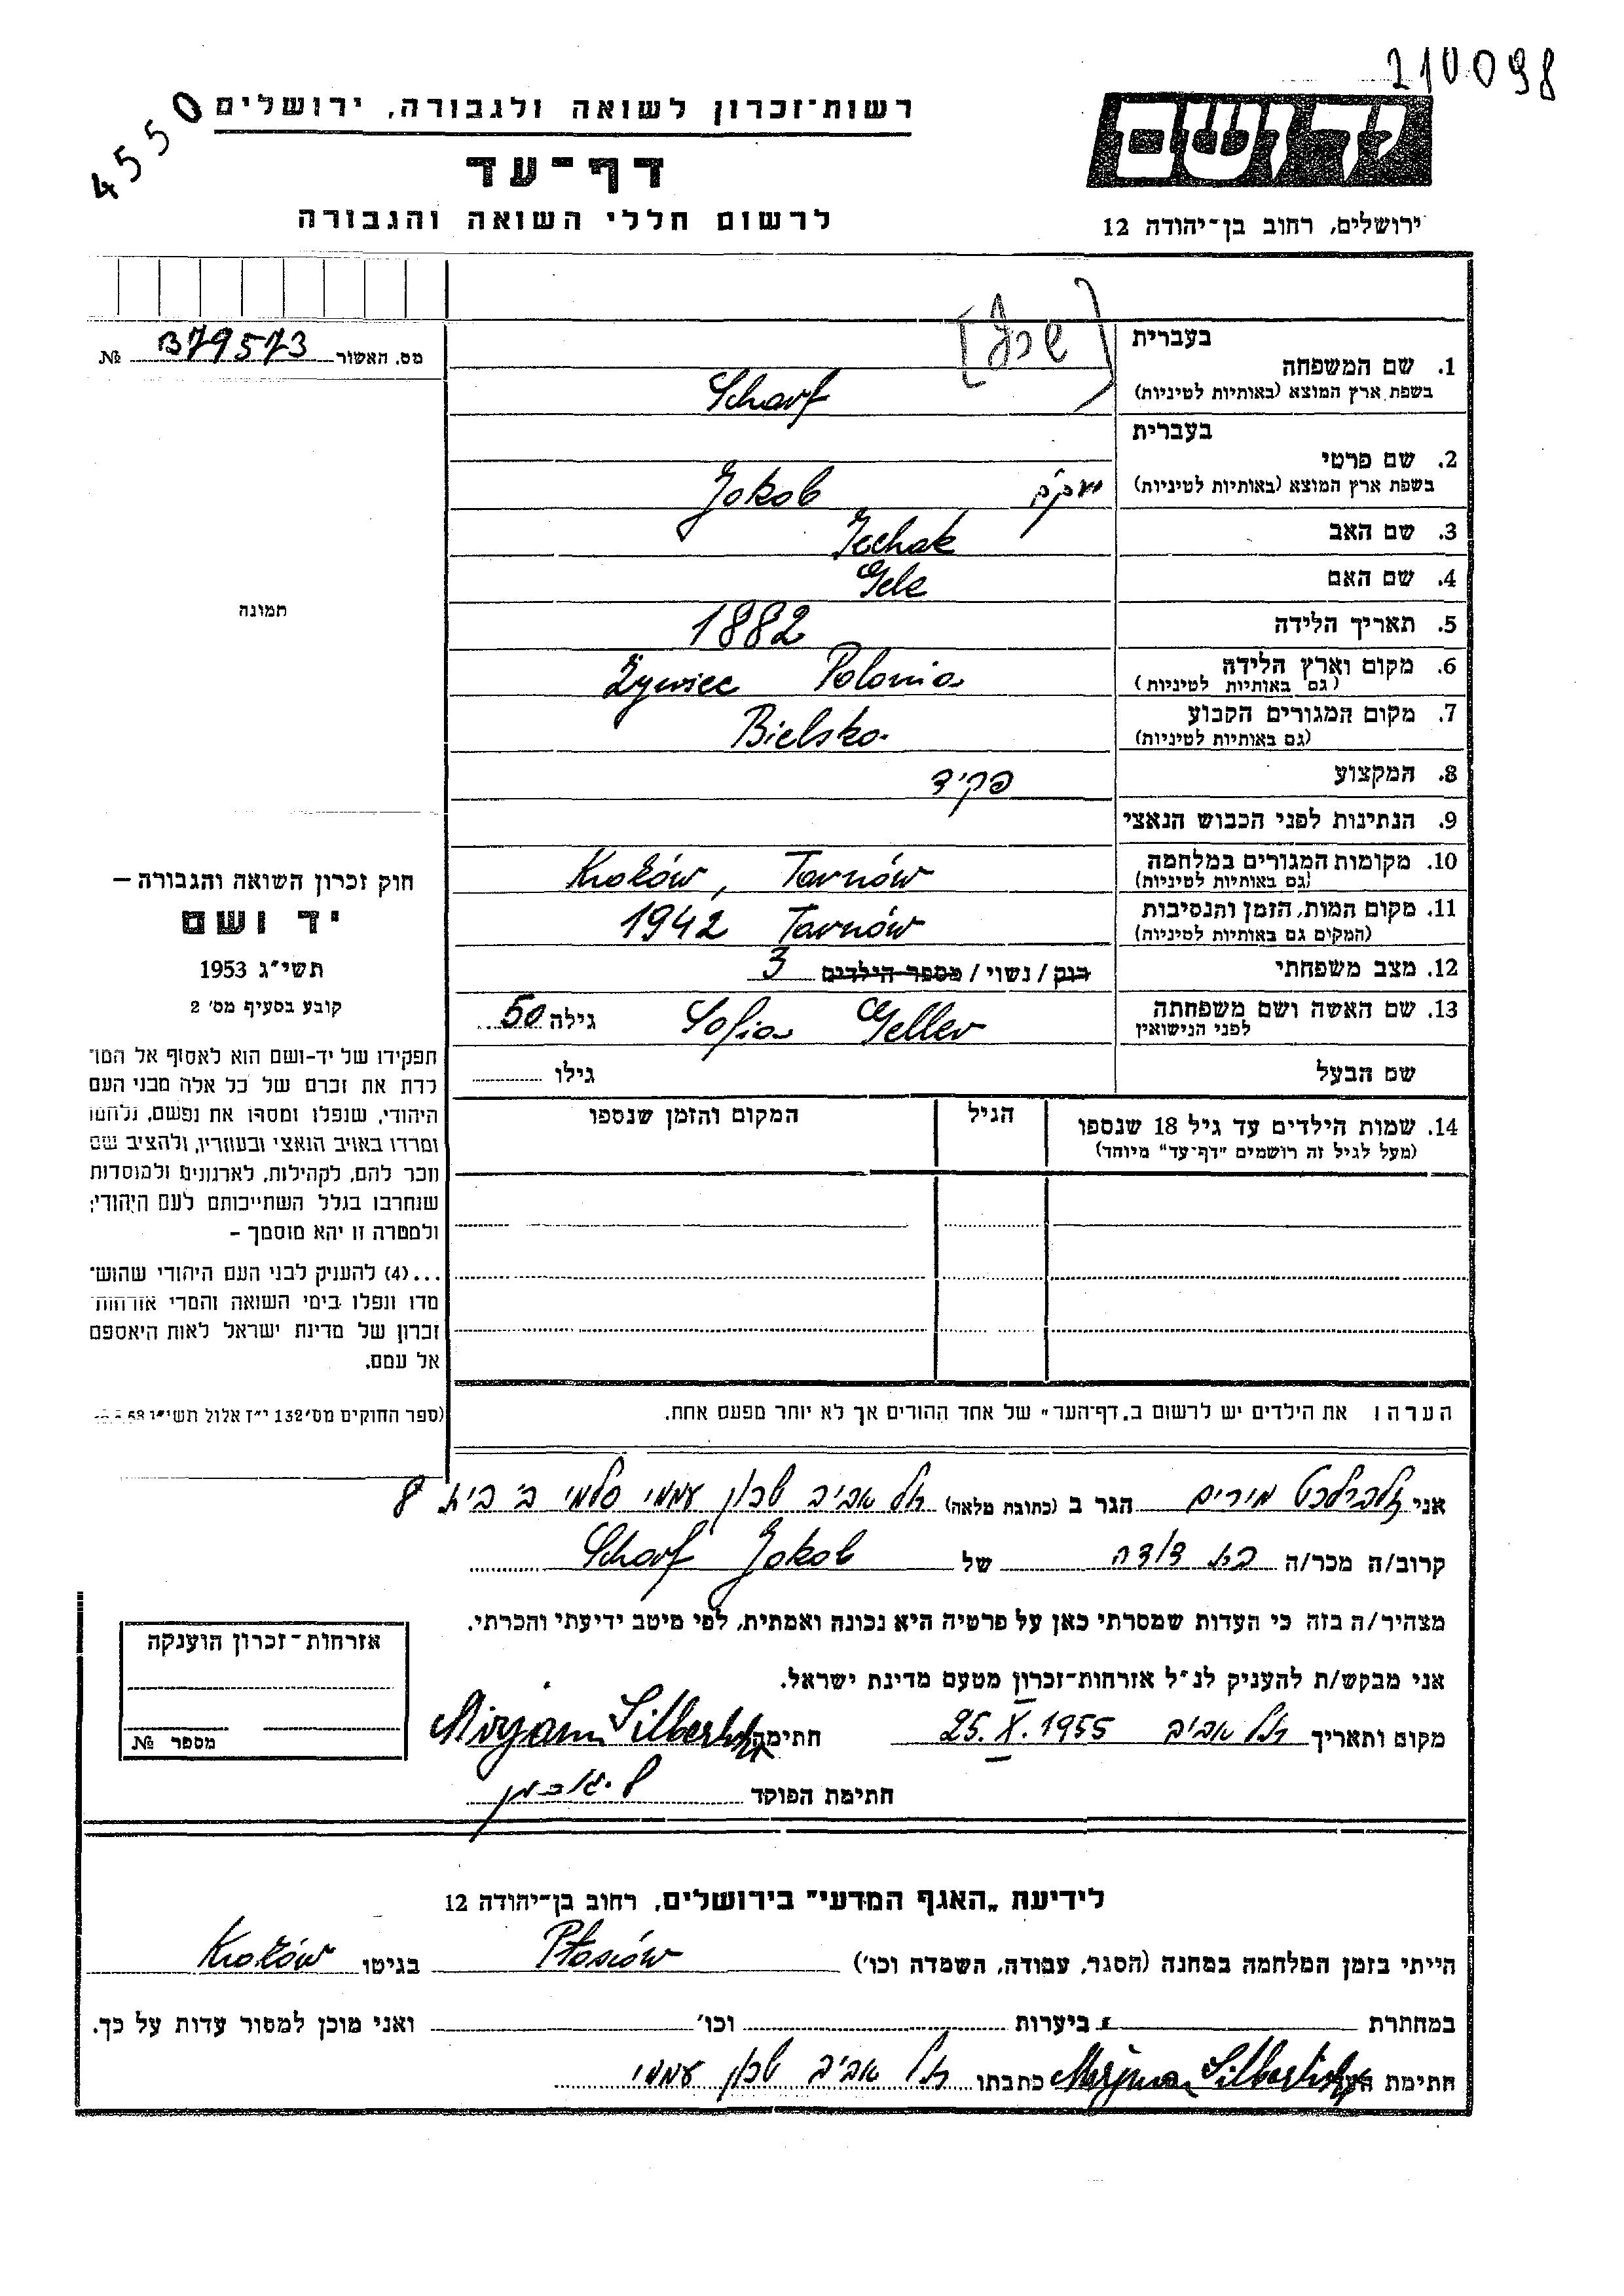 210098
4550
רשות־זכרון לשואה ולגבורה, ירושלים
דף־עד
לרשום חללי השואה והגבורה
יד ושם
ירושלים, רחוב בן־יהודה 12
מס. האשור B79573 №
תמונה
חוק זכרון השואה והגבורה –
יד ושם
תשי״ג 1953
קובע בסעיף מס׳ 2
תפקידו של יד-ושם הוא לאסוף אל המו־
לדת את זכרם של כל אלה מבני העם
היהודי, שנפלו ומסרו את נפשם, נלחמו
ומרדו באויב הנאצי ובעוזריו, ולהציב שם
וזכר להם, לקהילות, לארגונים ולמוסדות
שנחרבו בגלל השתייכותם לעם היהודי;
ולמטרה זו יהא מוסמך –
...(4) להעניק לבני העם היהודי שהוש־
מדו ונפלו בימי השואה והמרי אזרחות־
זכרון של מדינת ישראל לאות היאספם
אל עמם.
(ספר החוקים מס׳ 132 י״ז אלול תשי״ג
בעברית [שרף]
1. שם המשפחה
בשפת ארץ המוצא (באותיות לטיניות) Scharf
בעברית
2. שם פרטי
בשפת ארץ המוצא (באותיות לטיניות) יעקב Jakob
3. שם האב Icchak
4. שם האם Gela
5. תאריך הלידה 1882
6. מקום וארץ הלידה Żywiec Polonia
(גם באותיות לטיניות)
7. מקום המגורים הקבוע Bielsko
(גם באותיות לטיניות)
8. המקצוע פקיד
9. הנתינות לפני הכבוש הנאצי
10. מקומות המגורים במלחמה Kraków, Tarnów
(גם באותיות לטיניות)
11. מקום המות, הזמן והנסיבות 1942 Tarnów
(המקום גם באותיות לטיניות)
12. מצב משפחתי רוק / נשוי / מספר הילדים 3
13. שם האשה ושם משפחתה Sofia Geller גילה 50
לפני הנישואין
שם הבעל גילו
14. שמות הילדים עד גיל 18 שנספו הגיל המקום והזמן שנספו
(מעל לגיל זה רושמים ״דף־עד״ מיוחד)
הערה: את הילדים יש לרשום ב„דף־העד״ של אחד ההורים אך לא יותר מפעם אחת.
אני זילברליכט מירים הגר ב (כתובת מלאה) תל אביב שכון עממי סלמי ב בית 8
קרוב/ה מכר/ה בת דודה של Scharf Jakob
מצהיר/ה בזה כי העדות שמסרתי כאן על פרטיה היא נכונה ואמתית, לפי מיטב ידיעתי והכרתי.
אני מבקש/ת להעניק לנ״ל אזרחות־זכרון מטעם מדינת ישראל.
מקום ותאריך תל אביב 25.X.1955 חתימה Mirjam Silberlicht
חתימת הפוקד
אזרחות־זכרון הוענקה
מספר №
לידיעת „האגף המדעי״ בירושלים, רחוב בן־יהודה 12
הייתי בזמן המלחמה במחנה (הסגר, עבודה, השמדה וכו׳) Płaszów בגיטו Kraków
במחתרת ביערות וכו׳ ואני מוכן למסור עדות על כך.
חתימת העד Mirjam Silberlicht כתבתו תל אביב שכון עממי